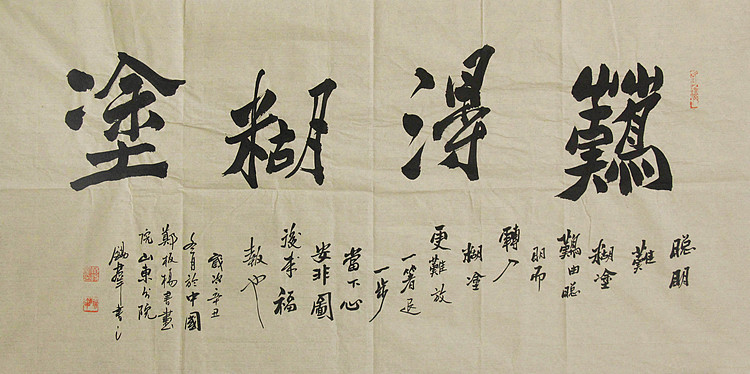 難得糊塗
聰明
難
糊塗
難由聰
明而
轉入
糊塗
更難放
一著退
一步
當下心
安非圖
後來福
報也
歲次辛丑
冬月於中國
鄭板橋書畫
院山東分院
書之